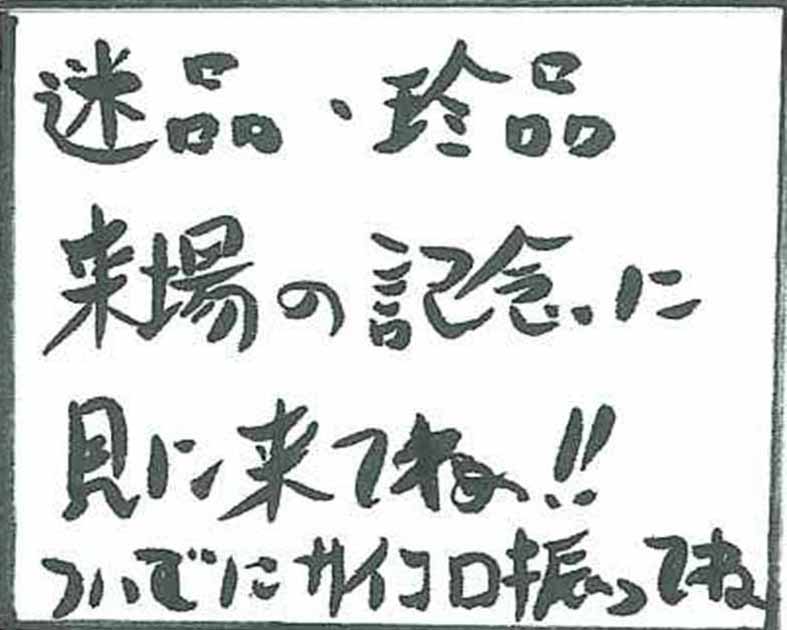 迷品・珍品
来場の記念に
見に来てね!!
ついでにサイコロ振ってね